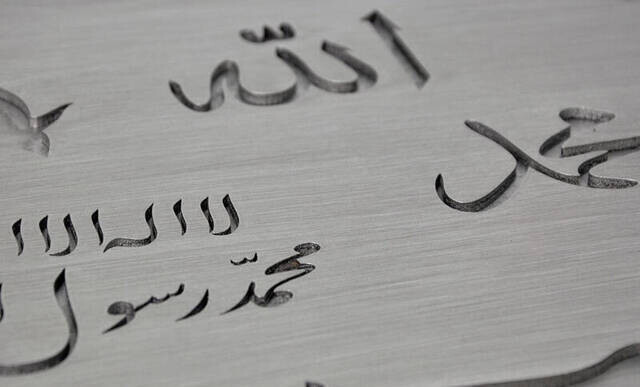 اللّه
محمد
لا اله الا
محمّد رسول